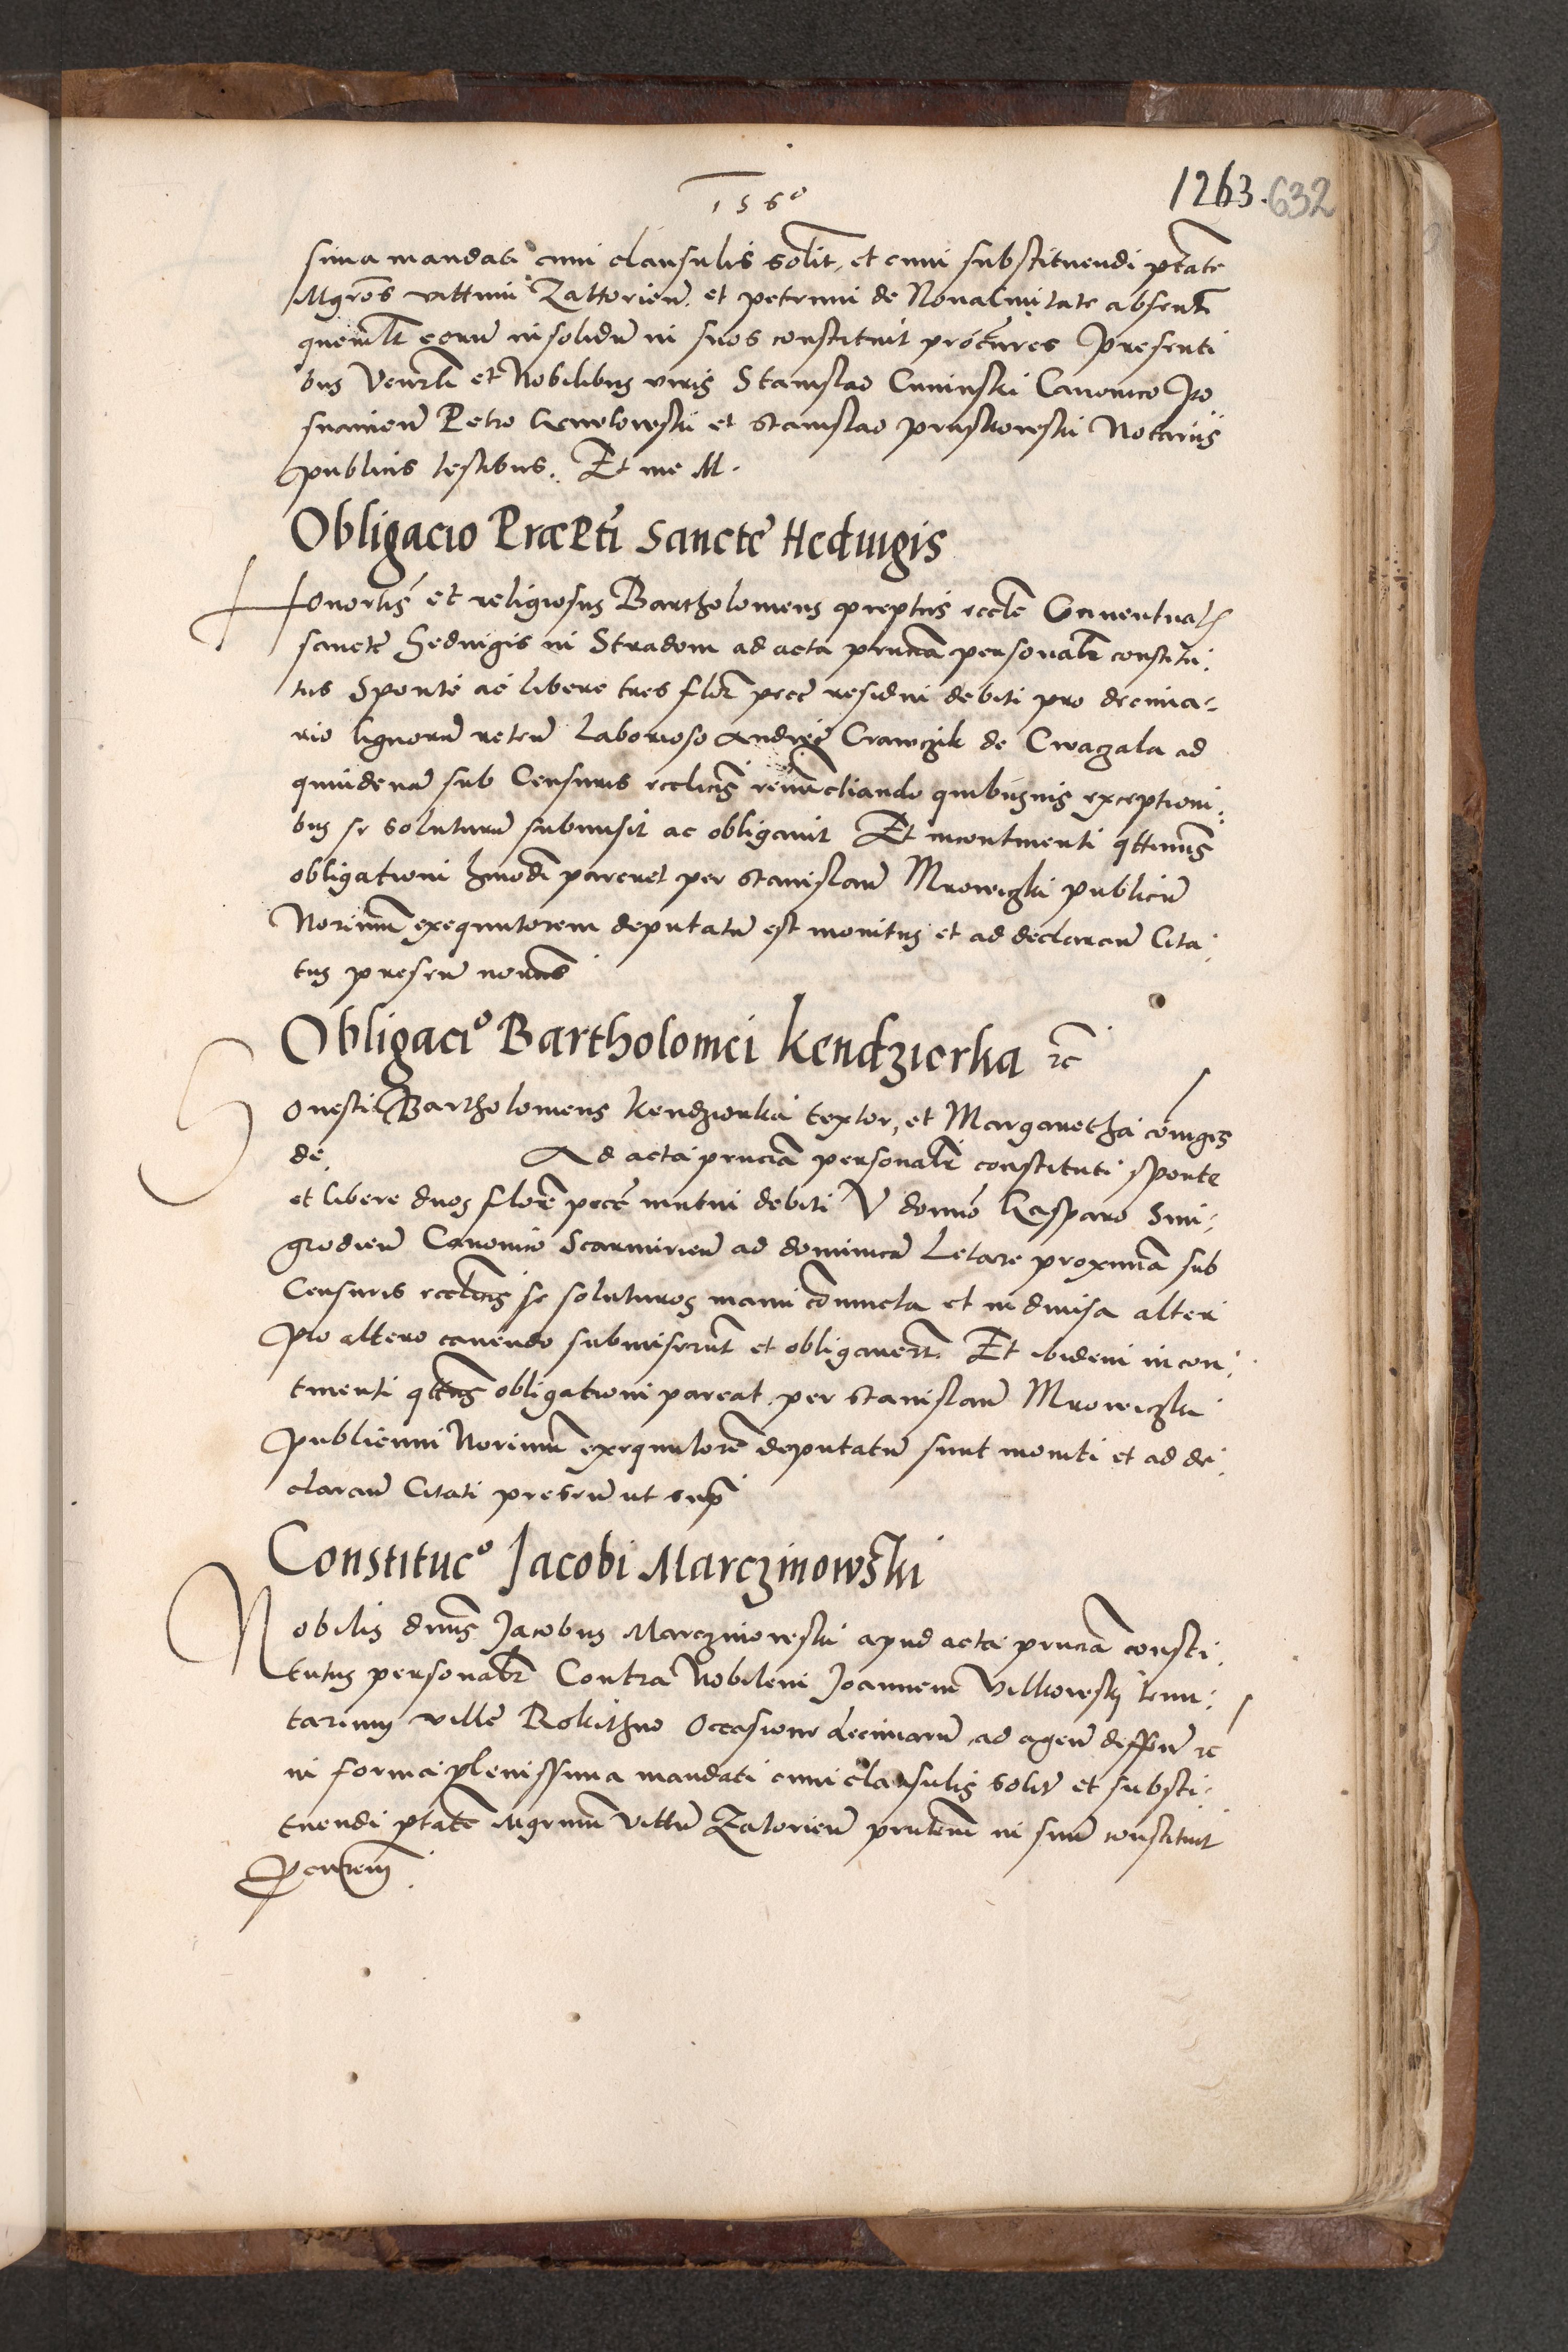 1560
1263. 632
sima mandati cum clausulis solit, et cum substituendi ptate
Mgros vittum Zattorien. et petrum de Nova Civitate absentes
quemlt eorum insolidum in suos constituit procures Presenti
bus Venrli et Nobilibus viris Stanislao Cuninski Canonico Po
snanien Petro et Stanislao Pruskowski Notariis
publicis testibus. Et me M.
Obligacio Præpti Sancte Heduigis
Honorlis et religiosus Bartholomeus preptus eccle Conventualis
sancte Hedwigis in Stradom ad acta prncia personalr constitu:
tus Sponte ac libere tres flor pecc residui debiti pro decima=
rio lignorum reten Laborioso Andree Crawczik de Cwagala ad
quindenam sub Censuris ecclicis renunctiando quibusvis exceptioni:
bus se soluturum submisit ac obligavit Et incontinenti qttenus
obligationi hmodi pareret per Stanislaum Mrowiczki publicum
Norium exequutorem deputatum est monitus et ad declarandum Cita:
tus presen
Obligacio Bartholomei Kendzierka rc
Honesti Bartholomeus Kendziorka textor, et Margaretha coniuges
de Ad acta prncia personalr constituti sponte
et libere duos floren pecc mutui debiti V domno Kasparo Smi=
grodien Canonico Scarmirien ad dominicam Letare proximam sub
Censuris ecclicis se soluturos manu coniuncta et indivisa alter
Pro altero cavendo submiserunt et obligaverunt. Et ibidem incon:
tinenti qttus obligationi pareat per Stanislaum Mrowiczki
Publicum Norium exequutorem deputatum sunt moniti et ad de:
claran Citati presen ut supra
Constituco Jacobi Marczinowski
Nobilis dnus Jacobus Marczinowski apud acta prncia consti:
tutus personalr Contra Nobilem Joannem Vilkowski tenu:
tarium ville Rokithno Occasione decimarum ad agen deffen rc
in forma plenissima mandati cum clausulis solit et substi:
tuendi ptate Mgrum Vittum Zatorien prntem in suum constituit
Procurem